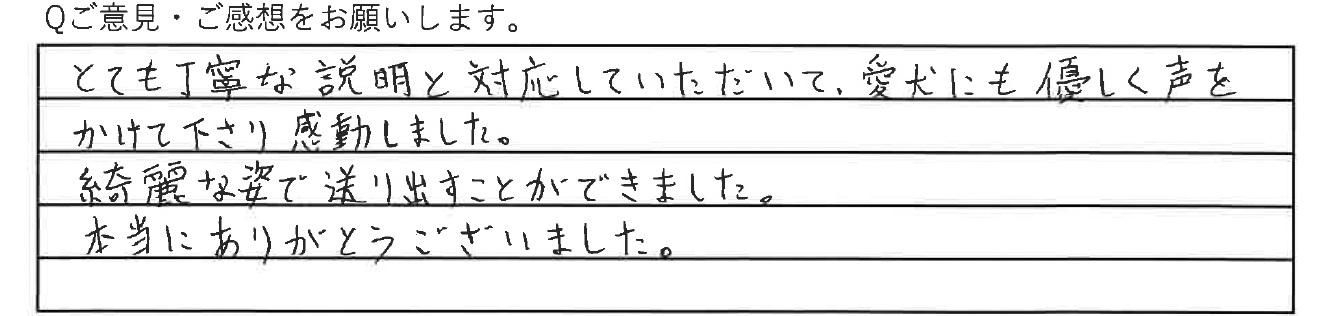 Qご意見・ご感想をお願いします。
とても丁寧な説明と対応していただいて、愛犬にも優しく声を
かけて下さり感動しました。
綺麗な姿で送り出すことができました。
本当にありがとうございました。